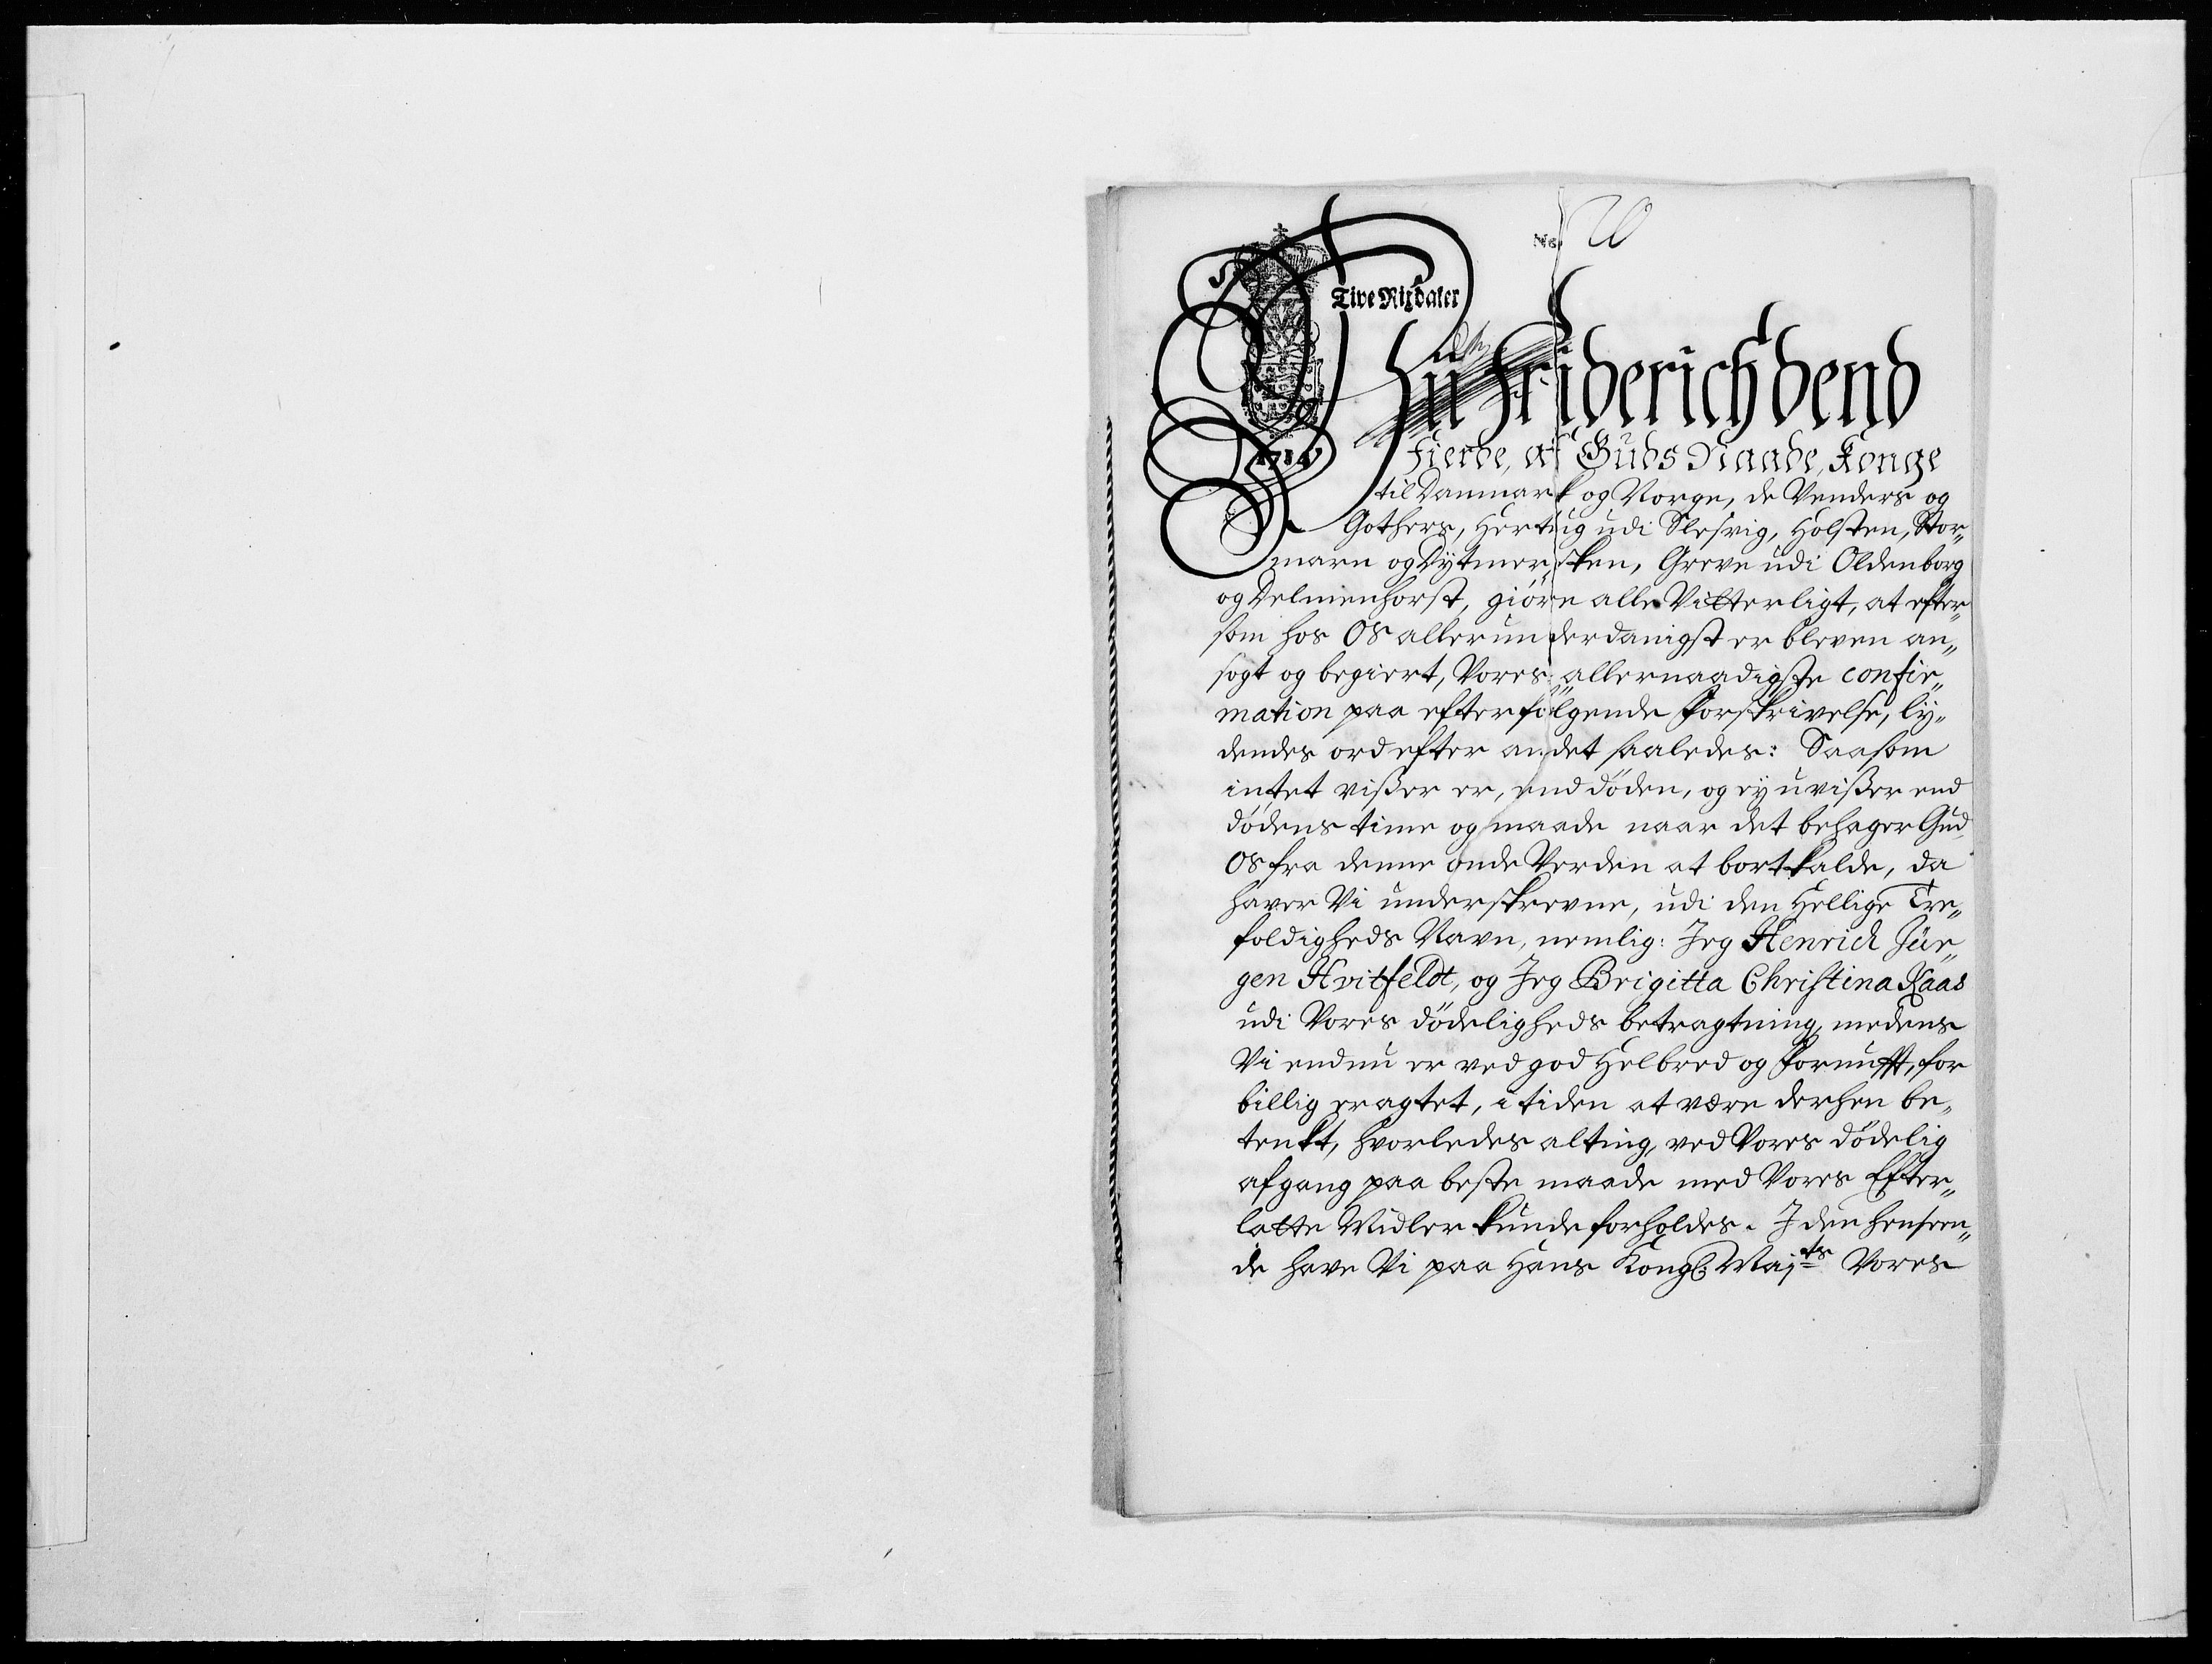 No.
Tive Rixdaler
1714
Vii Friderich dend
Fierde, af Guds Naade, Konge
til Danmark og Norge, de Venders og
Gothers, Hertug udi Slesvig, Holsten, Stor„
marn og Dytmer„sken, Greve udi Oldenborg
og Delmenhorst, giöre alle Vitterligt, at efter„
som hos OS allerunderdanigst er bleven an„
sogt og begiert, Vores allernaadigste confir„
mation paa efterfölgende Forskrivelse, ly„
dendes ord efter andet saaledes: Saasom
intet vißer er, end döden, og ey uvißer end
dödens time og maade naar det behager Gud
OS fra denne onde Verden at bortkalde, da
haver Vi underskrevne, udi den Hellige Tre„
foldigheds Navn, nemlig: Jeg Henrich Jür„
gen Hvitfeldt, og Jeg Brigitta Christina Kaas
udi Vores dödeligheds betragtning, medens
Vi endnu er ved god Helbred og Fornufft, for
billig eragtet, i tiden at være derhen be„
tenkt, hvorledes alting, ved Vores dödelig
afgang paa beste maade med Vores Efter„
latte Midler kunde forholdes. J den henseen„
de have Vi paa Hans Kongl. Maj.ts Vores